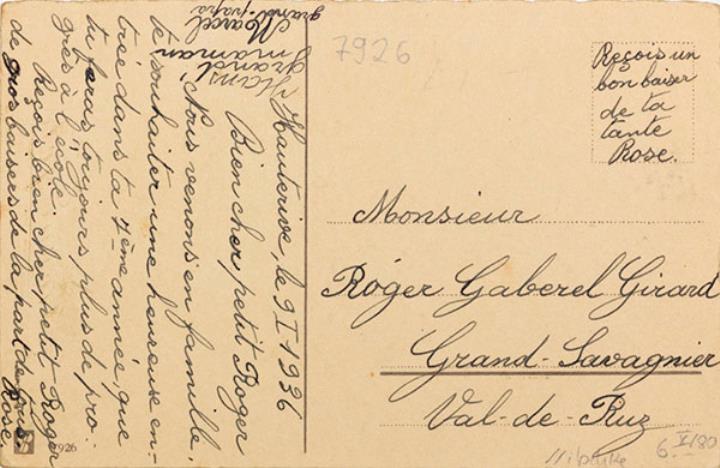 Hauterive, le 9 I 1936
Bien cher petit Roger
Nous venons en famille,
te souhaiter une heureuse en-
trée dans ta 7ème année, que
tu feras toujours plus de pro-
grès à l'école.
Reçois bien cher petit Roger
de gros baisers de la part de tous.
Rose.
Hans
grand'
maman
Marcel
grand-papa
7926
Reçois un
bon baiser
de ta
tante
Rose.
Monsieur
Roger Gaberel Girard
Grand-Savagnier
Val-de-Ruz
7926